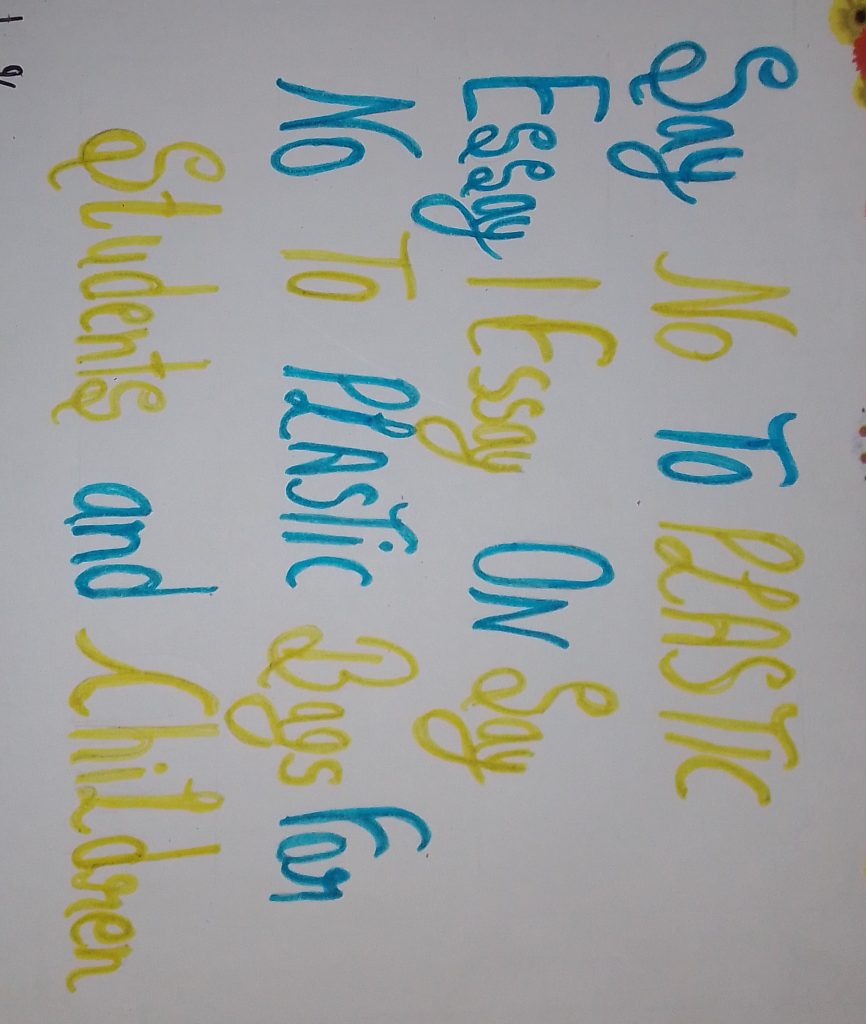 Say No To PLASTIC
Essay | Essay ON Say
No To PLASTic Bags For
Students and ChiLdren